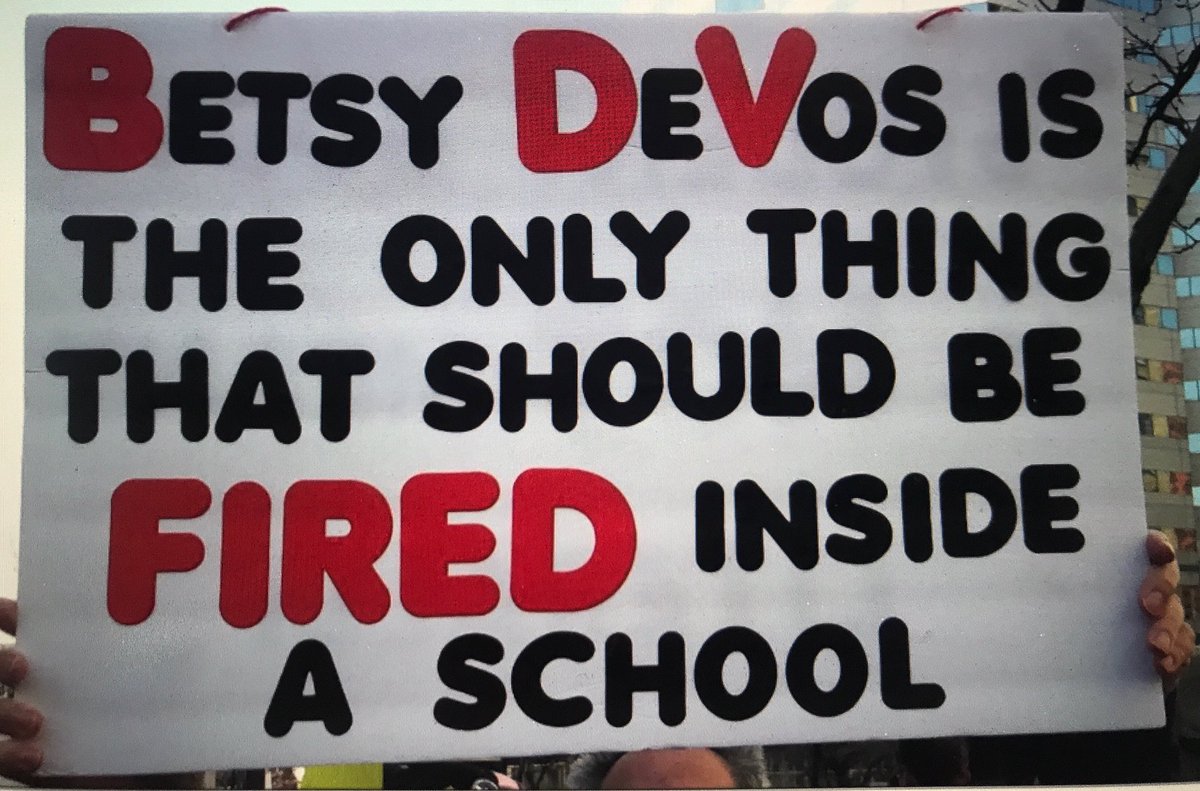 BETSY DEVOS IS
THE ONLY THING
THAT SHOULD BE
FIRED INSIDE
A SCHOOL